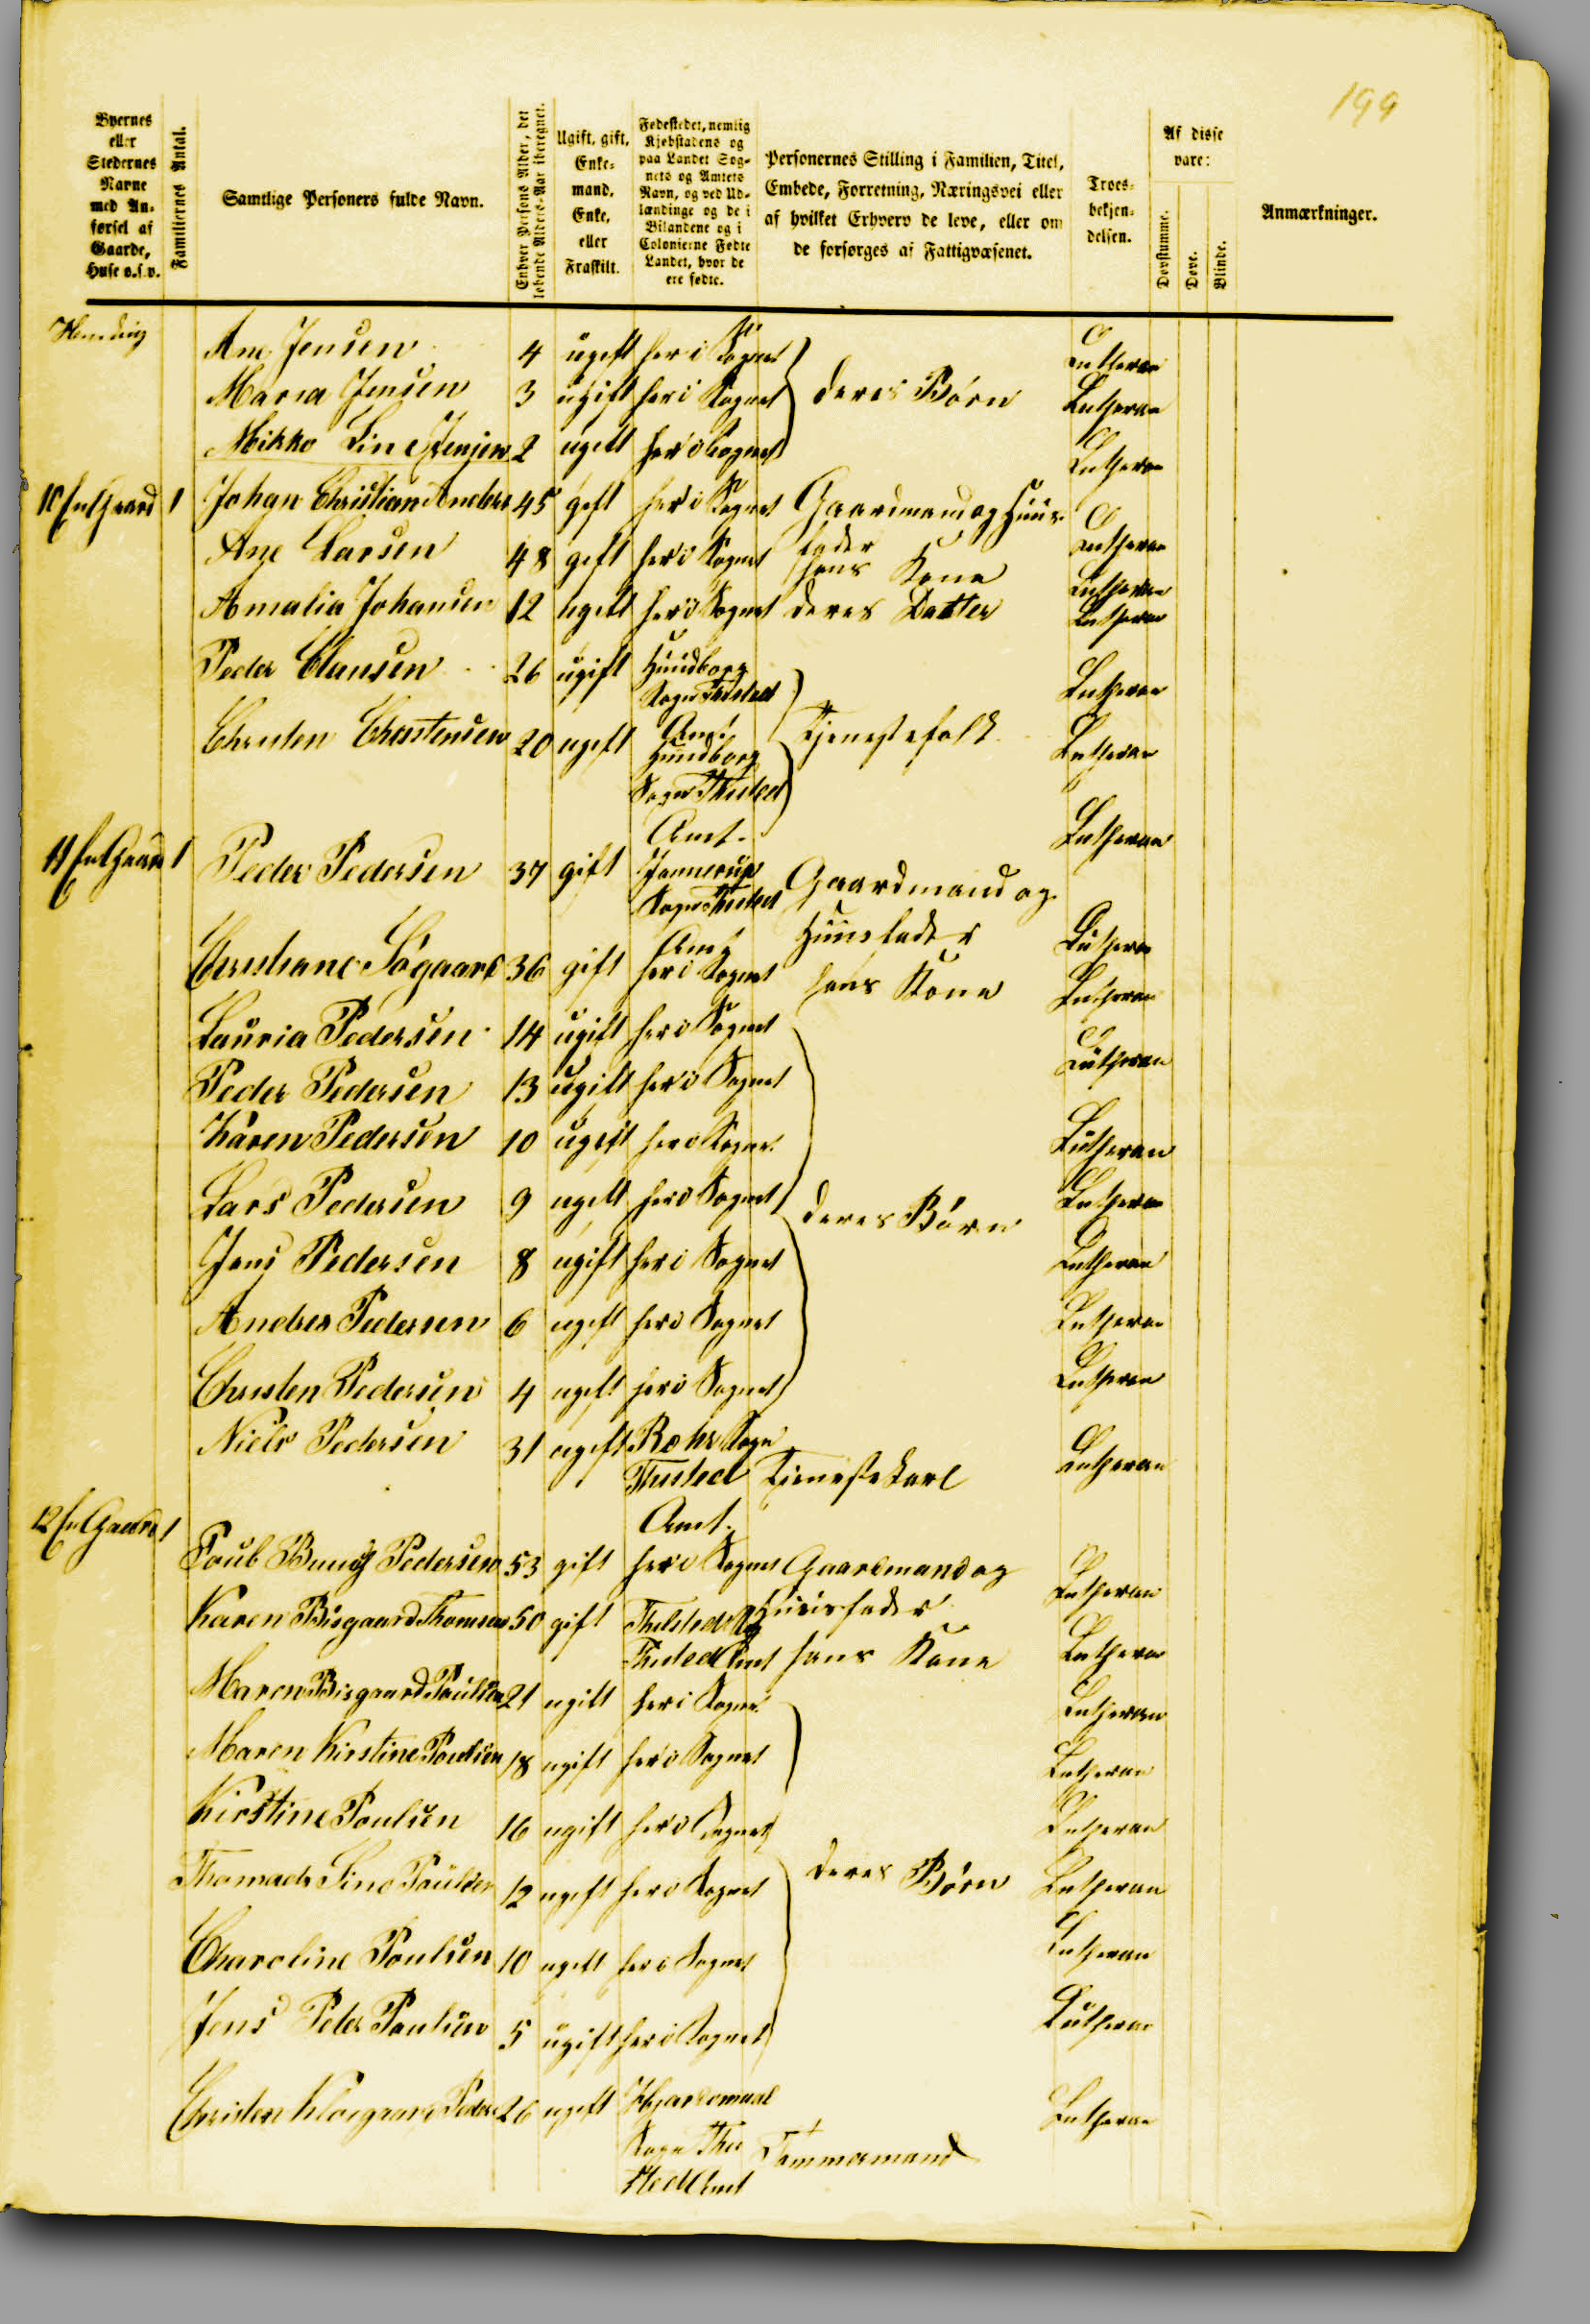 199
Byernes eller Stedernes Navne med Anførsel af Gaarde, Huse o.s.v.
Familiernes Antal.
Samtlige Personers fulde Navn.
Enhver Persons Alder, det løbende Alders-Aar iberegnet.
Ugift, gift, Enkemand, Enke, eller Fraskilt.
Fødestedet, nemlig Kjøbstadens og paa Landet Sognets og Amtets Navn, og ved Udlændinge og de i Bilandene og i Colonierne Fødte Landet, hvor de ere fødte.
Personernes Stilling i Familien, Titel, Embede, Forretning, Næringsvei eller af hvilket Erhverv de leve, eller om de forsørges af Fattigvæsenet.
Troesbekjendelsen.
Af disse vare:
Døvstumme.
Døve.
Blinde.
Anmærkninger.
Ane Jensen 4 ugift her i Sognet Lutheran
Maria Jensen 3 ugift her i Sognet deres Børn Lutheran
Mikko Line Jensen 2 ugift her i Sognet Lutheran
10 En Gaard 1 Johan Christian Anders 45 gift her i Sognet Gaardmand og Huus- Lutheran
fader
Ane Larsen 48 gift her i Sognet hans Kone Lutheran
Amalia Johansen 12 ugift her i Sognet deres Datter Lutheran
Peder Clausen 26 ugift Hundborg Lutheran
Sogn Thisted
Amt
Christen Christensen 20 ugift Hundborg Tjenestefolk Lutheran
Sogn Thisted
Amt. Lutheran
11 En Gaard 1 Peder Pedersen 37 gift Jannerup Gaardmand og
Sogn Thisted Huusfader Lutheran
Amt
Christiane Søgaard 36 gift her i Sognet hans Kone Lutheran
Lauria Pedersen 14 ugift her i Sognet Lutheran
Peder Pedersen 13 ugift her i Sognet
Karen Pedersen 10 ugift her i Sognet Lutheran
Lars Pedersen 9 ugift her i Sognet deres Børn Lutheran
Jens Pedersen 8 ugift her i Sognet Lutheran
Andres Pedersen 6 ugift her i Sognet Lutheran
Christen Pedersen 4 ugift her i Sognet Lutheran
Niels Pedersen 31 ugift Sogn Lutheran
Thisted Tjenestekarl
Amt.
12 En Gaard 1 Poul Pedersen 53 gift her i Sognet Gaardmand og Lutheran
Huusfader
Karen Bisgaard Thomsen 50 gift Lutheran
Thisted Amt hans Kone
Maren Bisgaard Poulsen 21 ugift her i Sognet Lutheran
Maren Kirstine Poulsen 18 ugift her i Sognet Lutheran
Kirstine Poulsen 16 ugift her i Sognet Lutheran
Line Poulsen 12 ugift her i Sognet deres Børn Lutheran
Charoline Poulsen 10 ugift her i Sognet Lutheran
Jens Peter Poulsen 5 ugift her i Sognet Lutheran
Christen Peders 26 ugift Lutheran
Sogn This Tømmermand
sted Amt